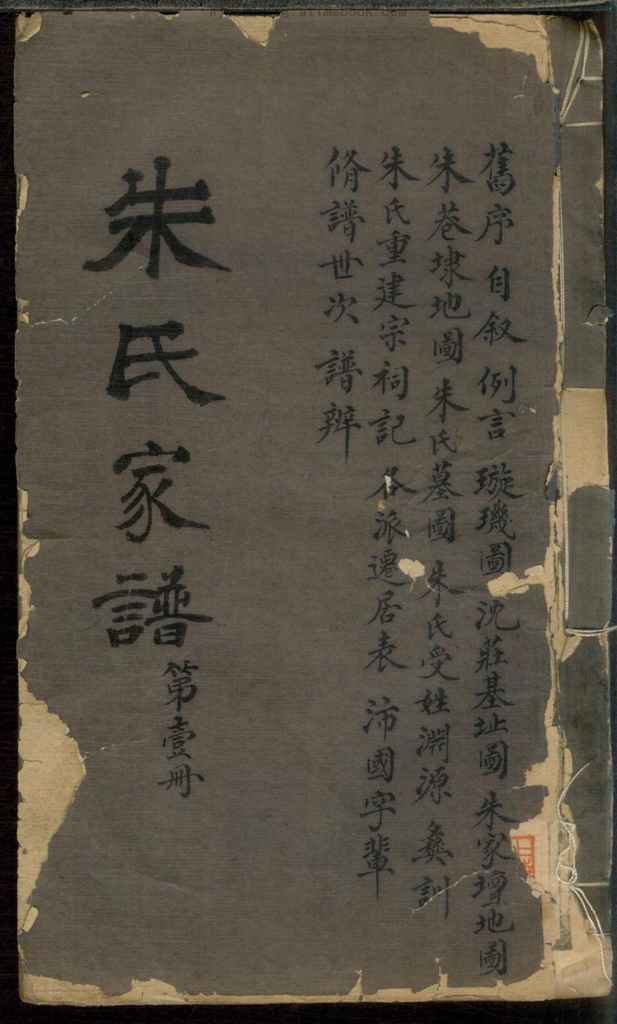 舊序 自叙 例言 璇璣圖 沈莊基址圖 朱家壪地圖
朱巷埭地圖 朱氏墓圖 朱氏受姓淵源 彝訓
朱氏重建宗祠記 各派遷居表 沛國字輩
脩譜世次 譜辨
朱氏家譜
第壹冊